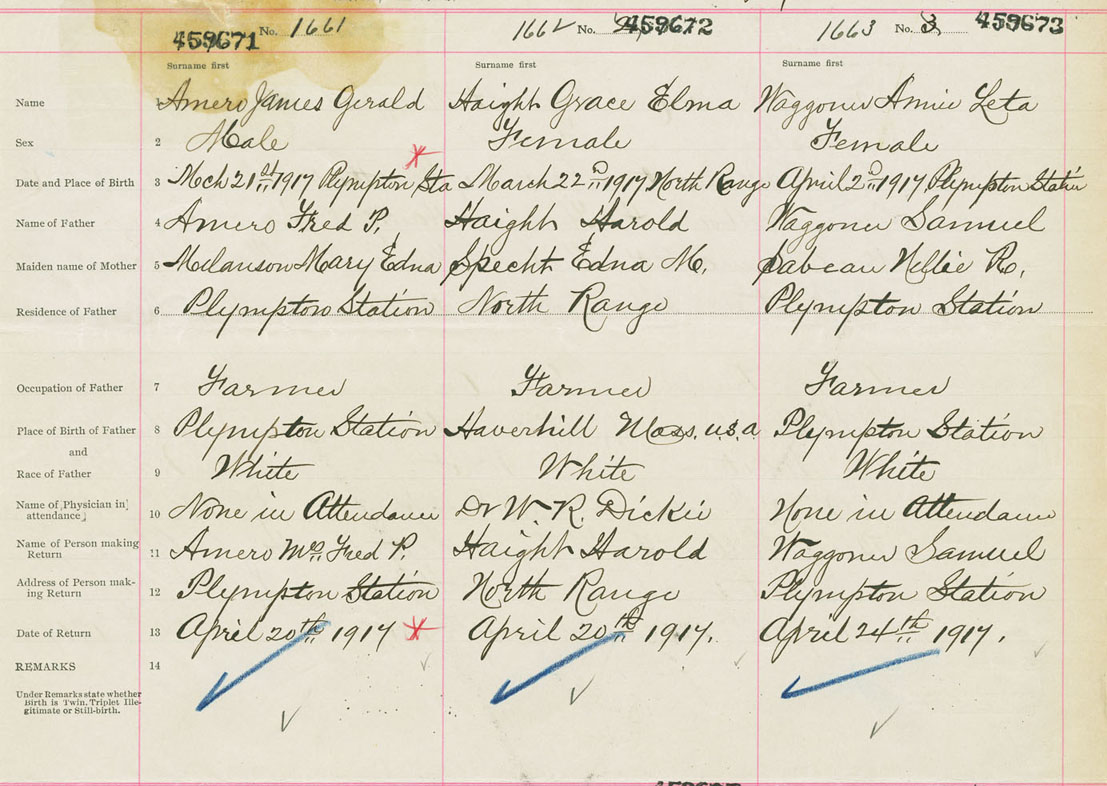 459671 No. 1661 1662 No. 459672 1663 No. 3 459673
Surname first Surname first Surname first
Name 1 Amero James Gerald Haight Grace Elma Waggoner Annie Leta
Sex 2 Male Female Female
Date and Place of Birth 3 Mch 21st 1917 Plympton Sta March 22nd 1917 North Range April 2nd 1917 Plympton Station
Name of Father 4 Amero Fred P. Haight Harold Waggoner Samuel
Maiden name of Mother 5 Melanson Mary Edna Specht Edna M. Sabean Nellie R.
Residence of Father 6 Plympton Station North Range Plympton Station
Occupation of Father 7 Farmer Farmer Farmer
Place of Birth of Father 8 Plympton Station Haverhill Mass. U.S.A Plympton Station
and
Race of Father 9 White White White
Name of Physician in
attendance 10 None in Attendance Dr W. R. Dickie None in Attendance
Name of Person making
Return 11 Amero Mrs Fred P. Haight Harold Waggoner Samuel
Address of Person mak-
ing Return 12 Plympton Station North Range Plympton Station
Date of Return 13 April 20th 1917 April 20th 1917. April 24th 1917.
REMARKS 14
Under Remarks state whether
Birth is Twin, Triplet Ille-
gitimate or Still-birth.